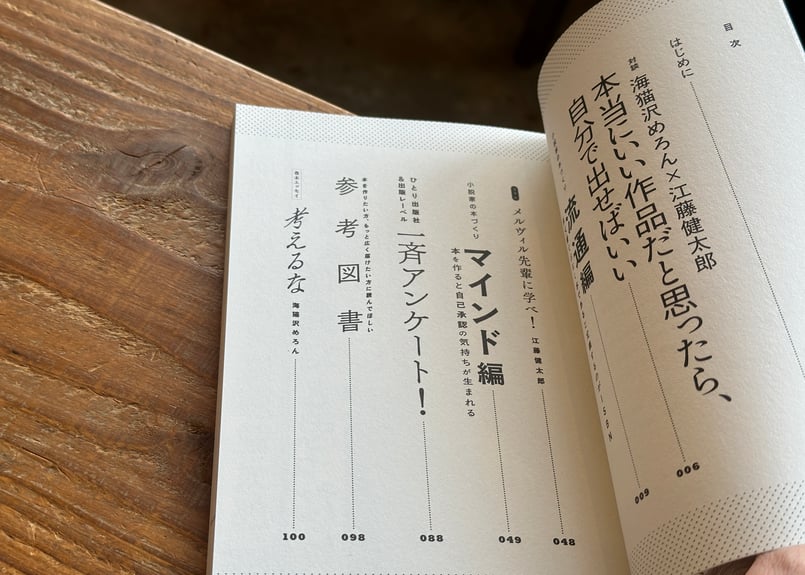 目次
はじめに
006
対談
海猫沢めろん×江藤健太郎
本当にいい作品だと思ったら、
自分で出せばいい
009
流通編
ISBN
メルヴィル先輩に学べ！ 江藤健太郎
048
小説家の本づくり
マインド編
本を作ると自己承認の気持ちが生まれる
049
ひとり出版社
&出版レーベル
一斉アンケート！
088
本を作りたい方、もっと広く届けたい方に読んでほしい
参考図書
098
巻末エッセイ
考えるな 海猫沢めろん
100